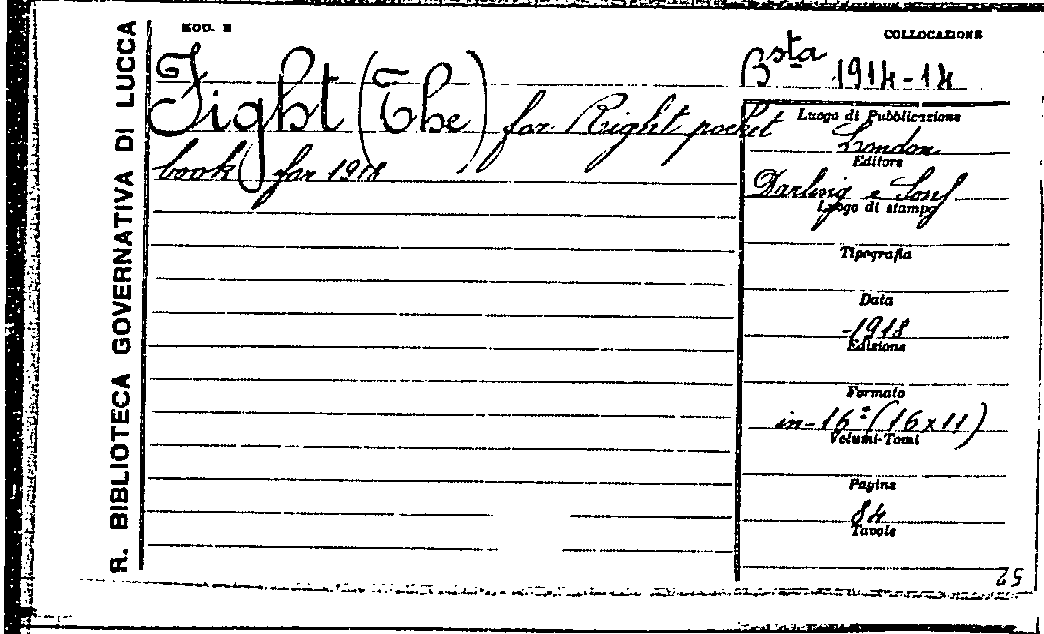 R. BIBLIOTECA GOVERNATIVA DI LUCCA
MOD. E
COLLOCAZIONE
Bsta 1914-14
Fight (The) for Right pocket
book for 1918
Luogo di Pubblicazione
London
Editore
Darling e
Luogo di stampa
Tipografia
Data
-1918
Edizione
Formato
in-16º (16x11)
Volumi-Tomi
Pagine
84
Tavole
52